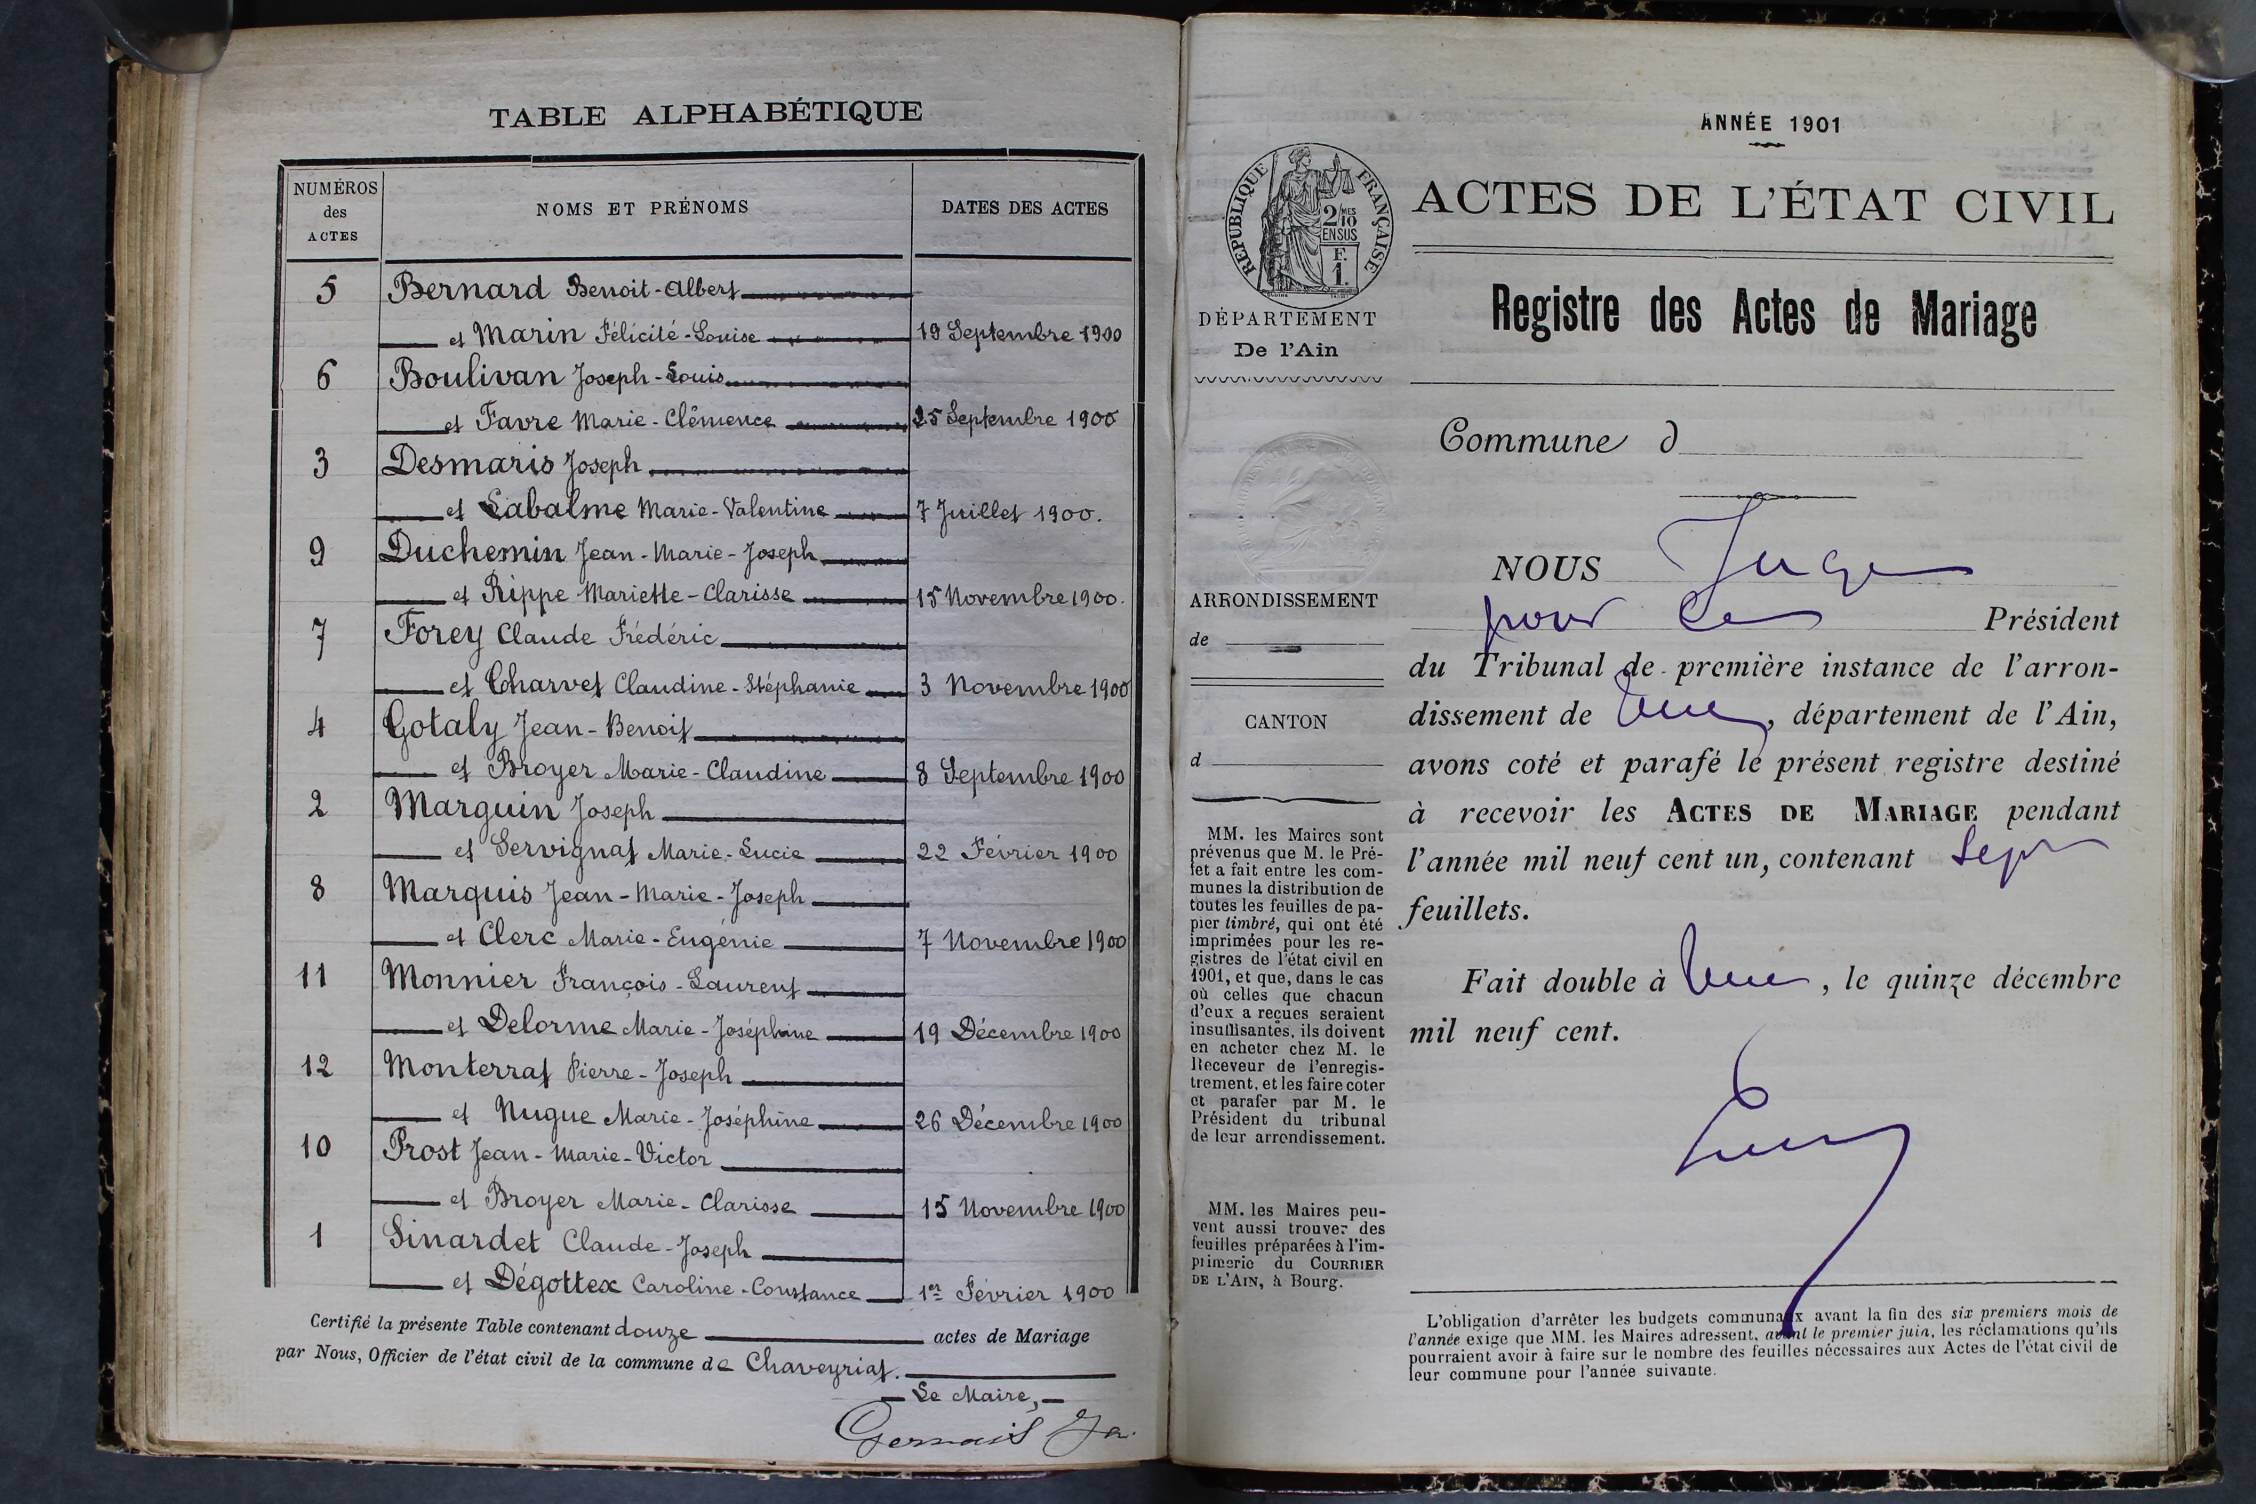 TABLE ALPHABÉTIQUE
NUMÉROS des ACTES
NOMS ET PRÉNOMS
DATES DES ACTES
5 Bernard Benoit-Albert
et Marin Félicité-Louise 19 Septembre 1900
6 Boulivan Joseph-Louis
et Favre Marie-Clémence 25 Septembre 1900
3 Desmaris Joseph
et Labalme Marie-Valentine 7 Juillet 1900.
9 Duchemin Jean-Marie-Joseph
et Rippe Mariette-Clarisse 15 Novembre 1900.
7 Forey Claude Frédéric
et Charvet Claudine-Stéphanie 3 Novembre 1900
4 Gotaly Jean-Benoit
et Broyer Marie-Claudine 8 Septembre 1900
2 Marguin Joseph
et Servignat Marie-Lucie 22 Février 1900
8 Marquis Jean-Marie-Joseph
et Clerc Marie-Eugénie 7 Novembre 1900
11 Monnier François-Laurent
et Delorme Marie-Joséphine 19 Décembre 1900
12 Monterrat Pierre-Joseph
et Nugue Marie-Joséphine 26 Décembre 1900
10 Prost Jean-Marie-Victor
et Broyer Marie-Clarisse 15 Novembre 1900
1 Sinardet Claude-Joseph
et Dégottex Caroline-Constance 1er Février 1900
Certifié la présente Table contenant douze actes de Mariage
par Nous, Officier de l'état civil de la commune de Chaveyriat.
Le Maire,
Gervais
ANNÉE 1901
RÉPUBLIQUE FRANÇAISE
2/10 MES
EN SUS
F.
1.
ACTES DE L'ÉTAT CIVIL
DÉPARTEMENT
De l'Ain
Registre des Actes de Mariage
Commune d
ARRONDISSEMENT
de
CANTON
d
NOUS Juge
pour le Président
du Tribunal de première instance de l'arron-
dissement de , département de l'Ain,
avons coté et parafé le présent registre destiné
à recevoir les ACTES DE MARIAGE pendant
l'année mil neuf cent un, contenant Sept
feuillets.
Fait double à , le quinze décembre
mil neuf cent.
MM. les Maires sont
prévenus que M. le Pré-
fet a fait entre les com-
munes la distribution de
toutes les feuilles de pa-
pier timbré, qui ont été
imprimées pour les re-
gistres de l'état civil en
1901, et que, dans le cas
où celles que chacun
d'eux a reçues seraient
insuffisantes, ils doivent
en acheter chez M. le
Receveur de l'enregis-
trement, et les faire coter
et parafer par M. le
Président du tribunal
de leur arrondissement.
MM. les Maires peu-
vent aussi trouver des
feuilles préparées à l'im-
primerie du COURRIER
DE L'AIN, à Bourg.
L'obligation d'arrêter les budgets communaux avant la fin des six premiers mois de
l'année exige que MM. les Maires adressent, avant le premier juin, les réclamations qu'ils
pourraient avoir à faire sur le nombre des feuilles nécessaires aux Actes de l'état civil de
leur commune pour l'année suivante.